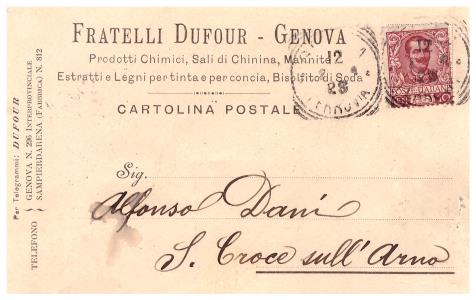 FRATELLI DUFOUR - GENOVA
Prodotti Chimici, Sali di Chinina, Mannite
Estratti e Legni per tinta e per concia, Bisolfito di Soda
CARTOLINA POSTALE
Per Telegrammi: DUFOUR
TELEFONO
GENOVA N. 296 INTERPROVINCIALE
SAMPIERDARENA (FABBRICA) N. 812
12
28
FERROVIA
12
POSTE ITALIANE
Sig.
Alfonso Dani
S. Croce sull'Arno